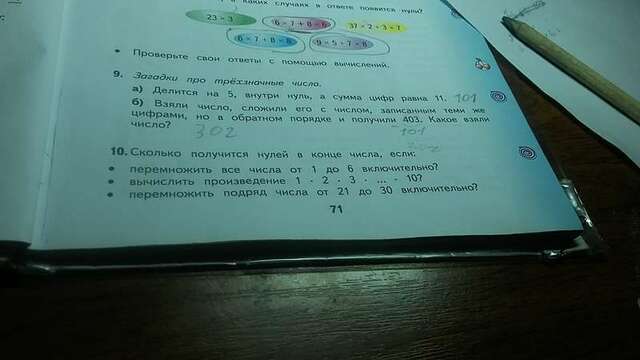 в каких случаях в ответе появится нули?
23 · 3
6 · 7 + 8 · 6
37 · 2 + 3 · 7
6 · 7 + 8 · 8
9 · 5 + 7 · 8
• Проверьте свои ответы с помощью вычислений.
9. Загадки про трёхзначные число.
а) Делится на 5, внутри нуль, а сумма цифр равна 11. 101
б) Взяли число, сложили его с числом, записанным теми же
цифрами, но в обратном порядке и получили 403. Какое взяли
число? 302
101
302
10. Сколько получится нулей в конце числа, если:
• перемножить все числа от 1 до 6 включительно?
• вычислить произведение 1 · 2 · 3 · ... · 10?
• перемножить подряд числа от 21 до 30 включительно?
71